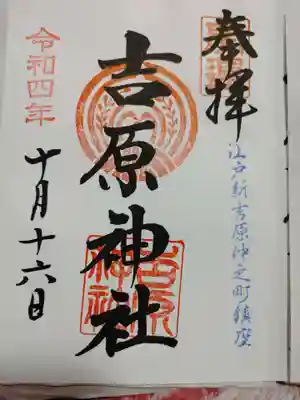 奉拝
江戸新吉原仲之町鎮座
吉原神社
吉原
神社
令和四年
十月十六日